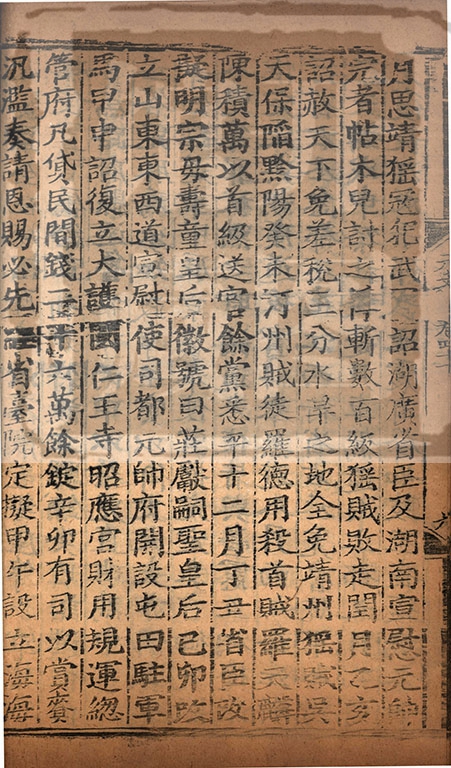 月思靖猺冦犯武 詔湖廣省臣及湖南宣慰元帥
完者帖木兒討之 斬數百級猺賊敗走閏月乙亥
詔赦天下免差稅三分水旱之地全免靖州猺賊吳
天保陷黔陽癸未河州賊徒羅德用殺首賊羅天麟
陳積萬以首級送官餘黨悉平十二月丁丑省臣改
諡明宗母壽童皇后徽號曰莊獻嗣聖皇后己卯改
立山東東西道宣慰使司都元帥府開設屯田駐軍
馬甲申詔復立大護國仁王寺昭應宮財用規運緫
管府凡貸民間錢二十六萬餘錠辛卯有司以賞賚
汎濫奏請恩賜必先 省臺院定擬甲午設立海海
六